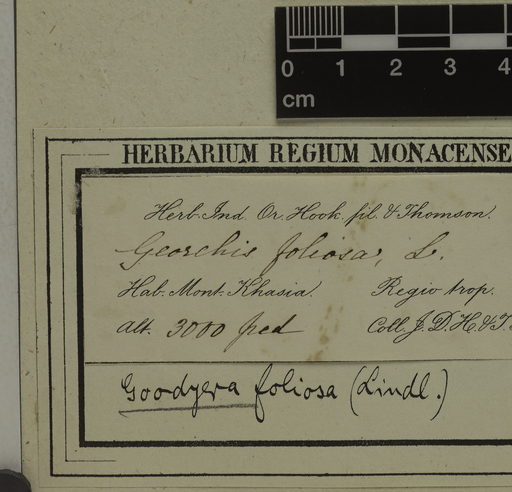 0 1 2 3 4
cm
HERBARIUM REGIUM MONACENSE
Herb. Ind. Or. Hook. fil. & Thomson.
Georchis foliosa, L.
Hab. Mont. Khasia. Regio trop.
Alt. 3000 ped Coll. J. D. H. & T.
Goodyera foliosa (Lindl.)